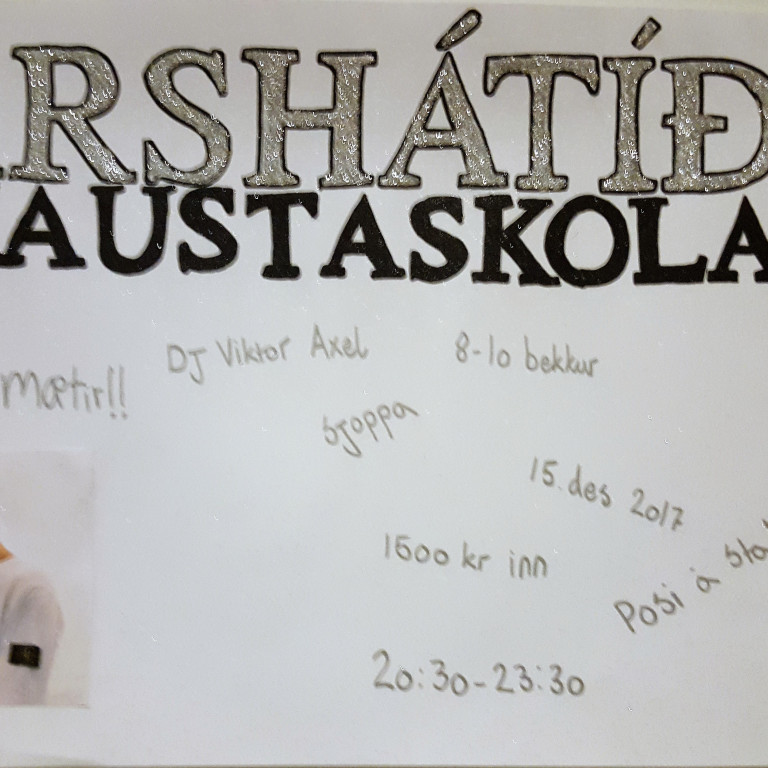 ÁRSHÁTÍÐ
AUSTASKOLA
mætir!!
DJ Viktor Axel
8-10 bekkur
sjoppa
15. des 2017
1500 kr inn
Posi á sta
20:30-23:30